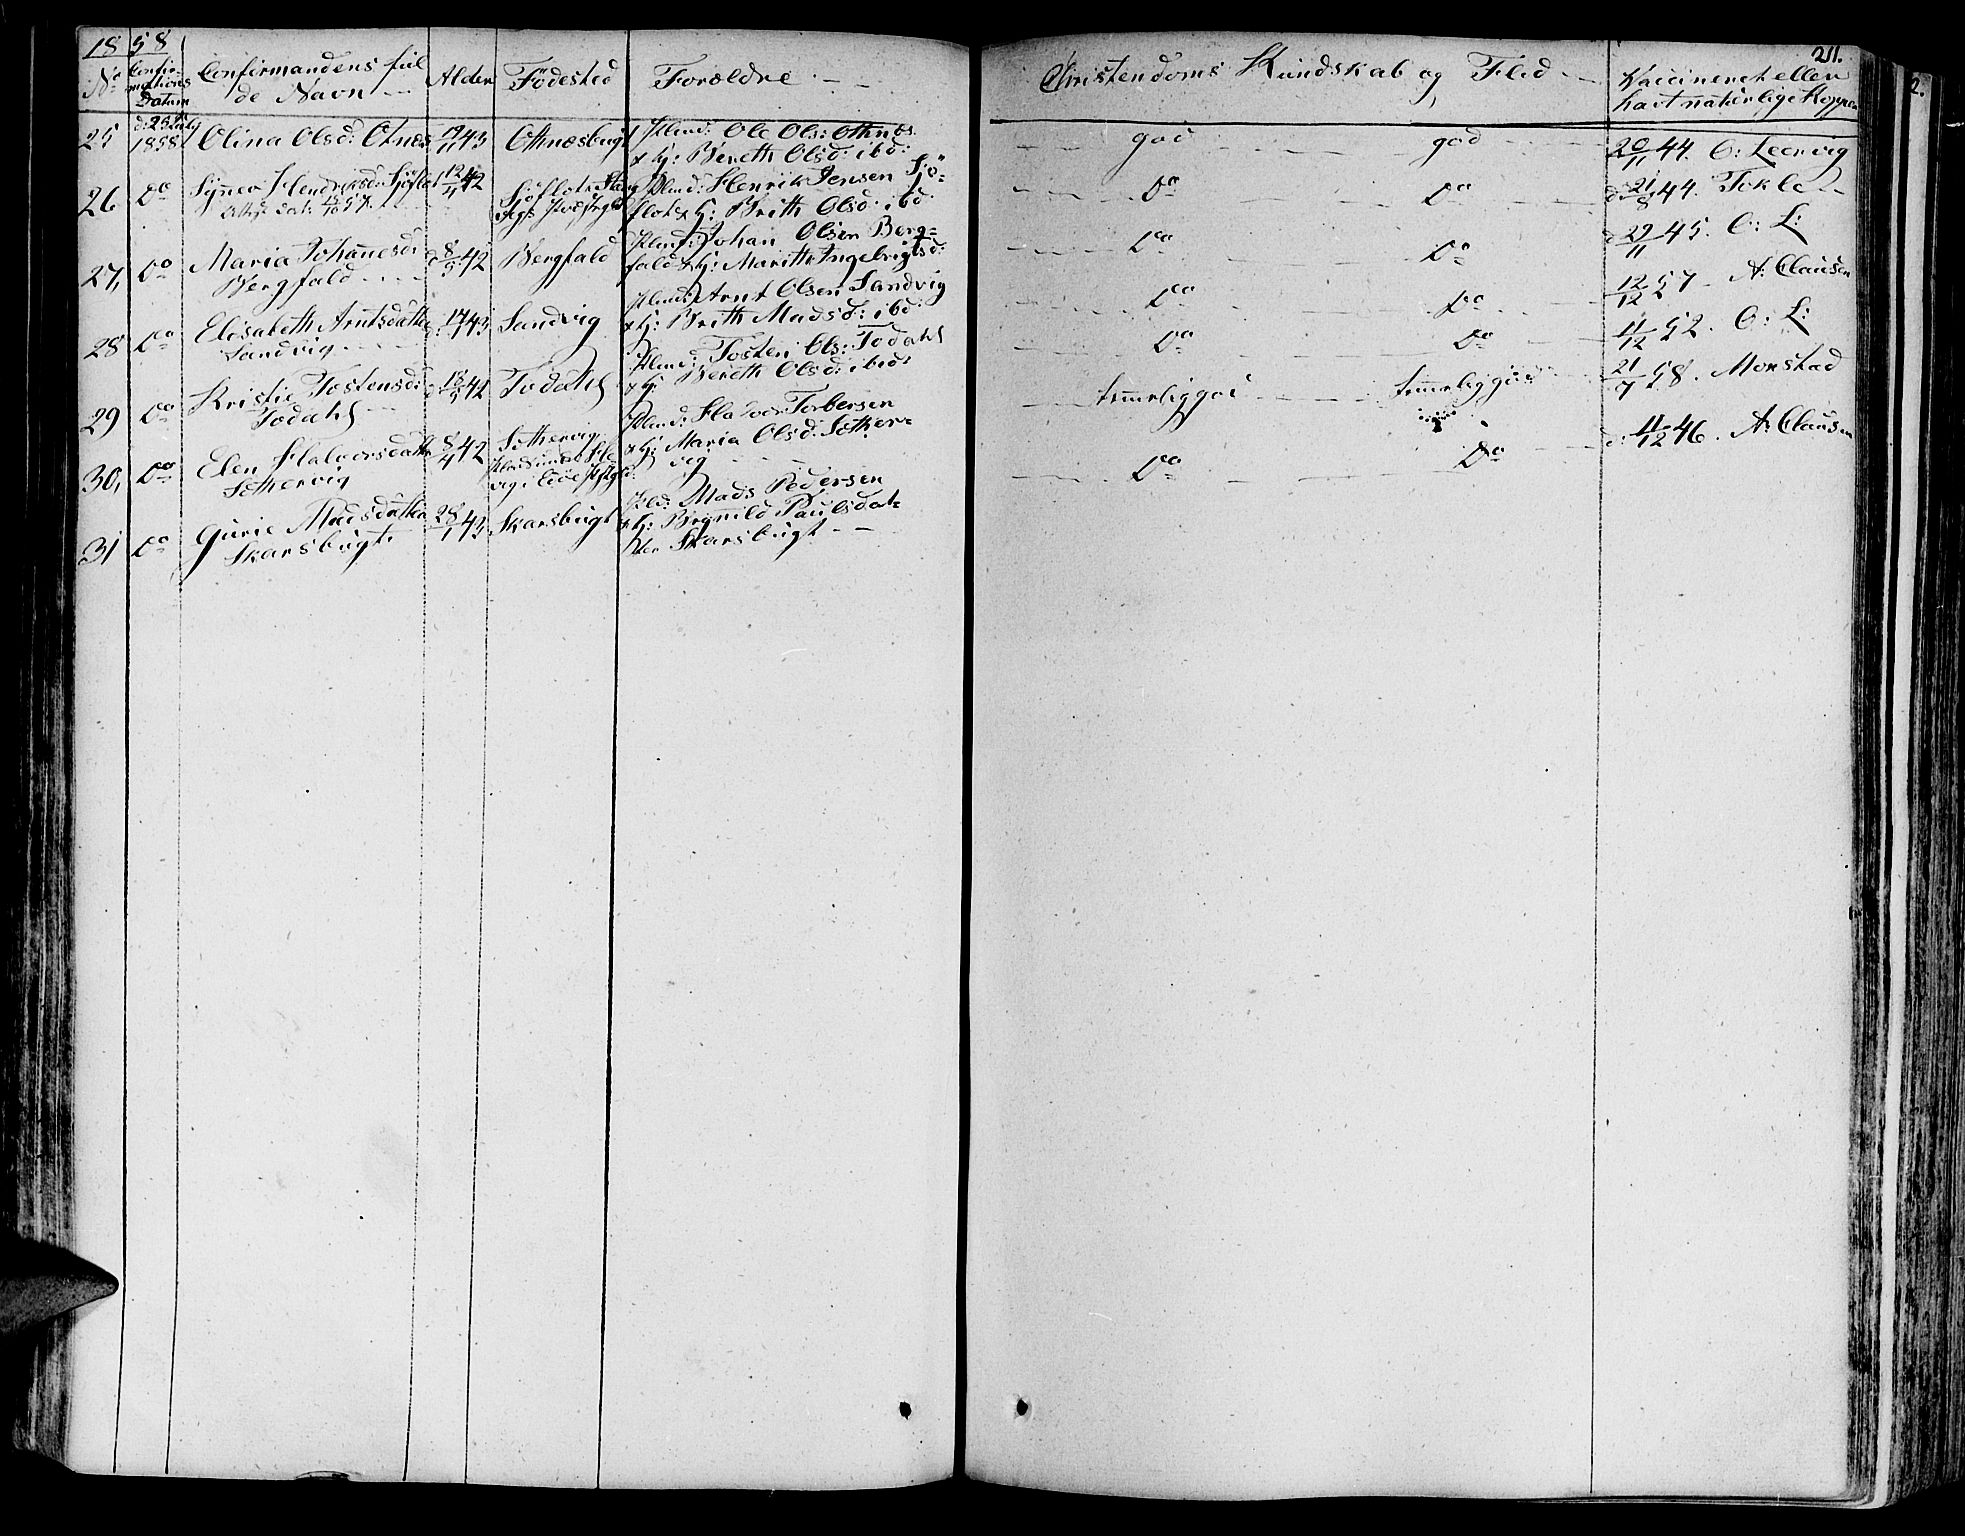 1858
211.
No
Confirmations Datum
Confirmandens fulde Navn
Alder
Födested
Forældre
Christendoms Kundskab og Flid
Vaccineret eller havt natürlige Kopper
25
d: 25 July 1858
Olina Olsd: Otnes
43
Othnæsbugt
Hmd: Ole Ols: Othnes
& K: Bereth Olsd: ibd:
god
god
20/11 44. O: Leervig
26
Do
42
Hmd: Henrik Jensen Sjö=
flot & K: Brith Olsd: ibd:
Do
Do
d: 21/8 44. Tokle
27,
Do
Maria Johannesd:
Bergfald
8/5 42
Bergfald
Hmd: Johan Olsen Berg=
fald & K: Marith Ingebrigtsd:
Do
Do
d 29/11 45. O: L:
28
Do
Elisabeth Arntsdatter
Sandvig
43
Sandvig
Hmd: Arnt Olsen Sandvig
& K: Brith Madsd: ibd:
Do
Do
12/12 57 A: Clausen
29
Do
Kristie Tostensd:
Todahl
42
Todahl
Hmd: Tosten Ols: Todahl
& K: Bereth Olsd: ibd:
Do
Do
11/12 52. O: L:
30,
Do
Elen Halvorsdatter
Sæthervig
8/4 42
Sæthervig
Hmd: Halvor Torbersen
& K: Maria Olsd: Sæther=
vig
temmeliggod
temmeliggod
21/7 58. Monstad
31
Do
Gurie Madsdatter
Skarsbugt
28/1 43
Skarsbugt
Hmd: Mads Pedersen
& K: Brynild Paulsdat=
ter Skarsbugt
Do
Do
d: 11/12 46. A: Clausen